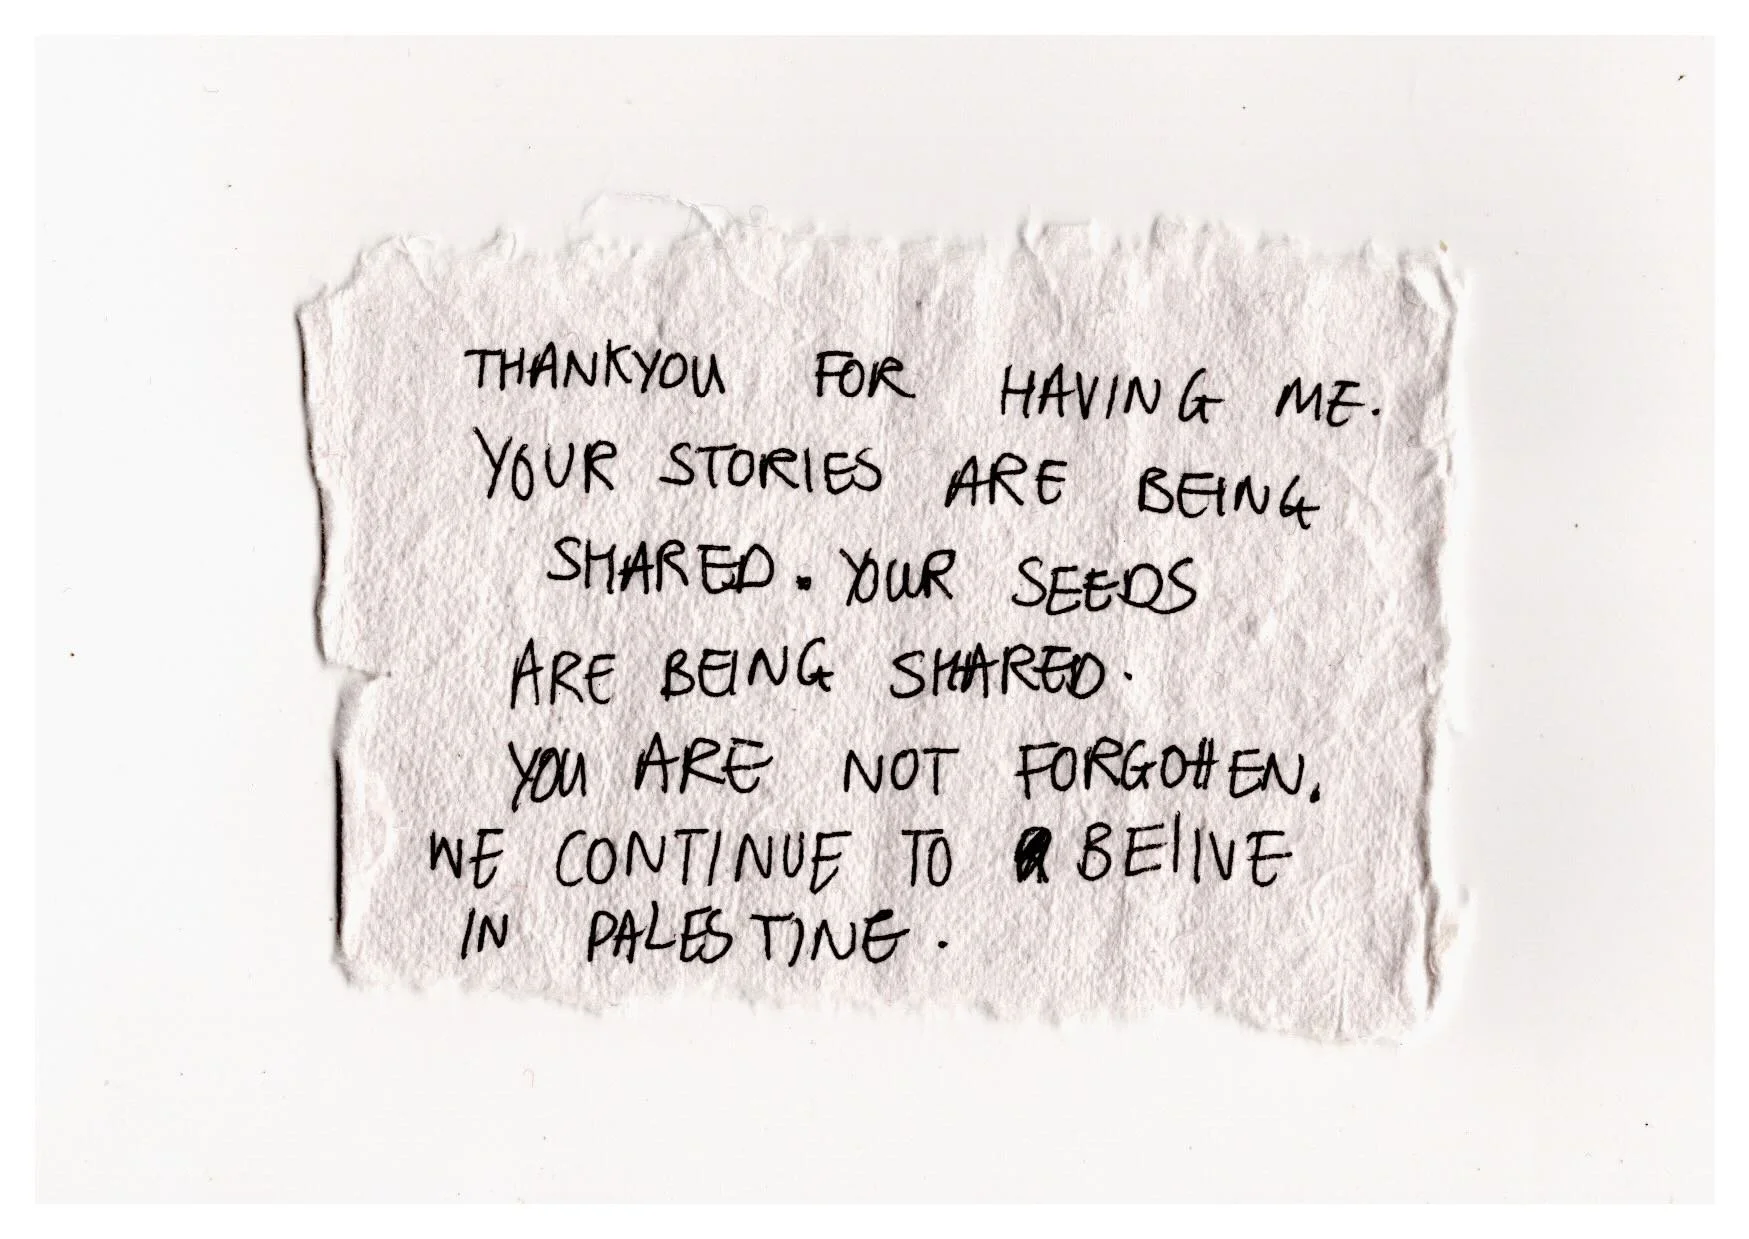 THANKYOU FOR HAVING ME.
YOUR STORIES ARE BEING
SHARED. YOUR SEEDS
ARE BEING SHARED.
YOU ARE NOT FORGOTTEN.
WE CONTINUE TO BELIIVE
IN PALESTINE.